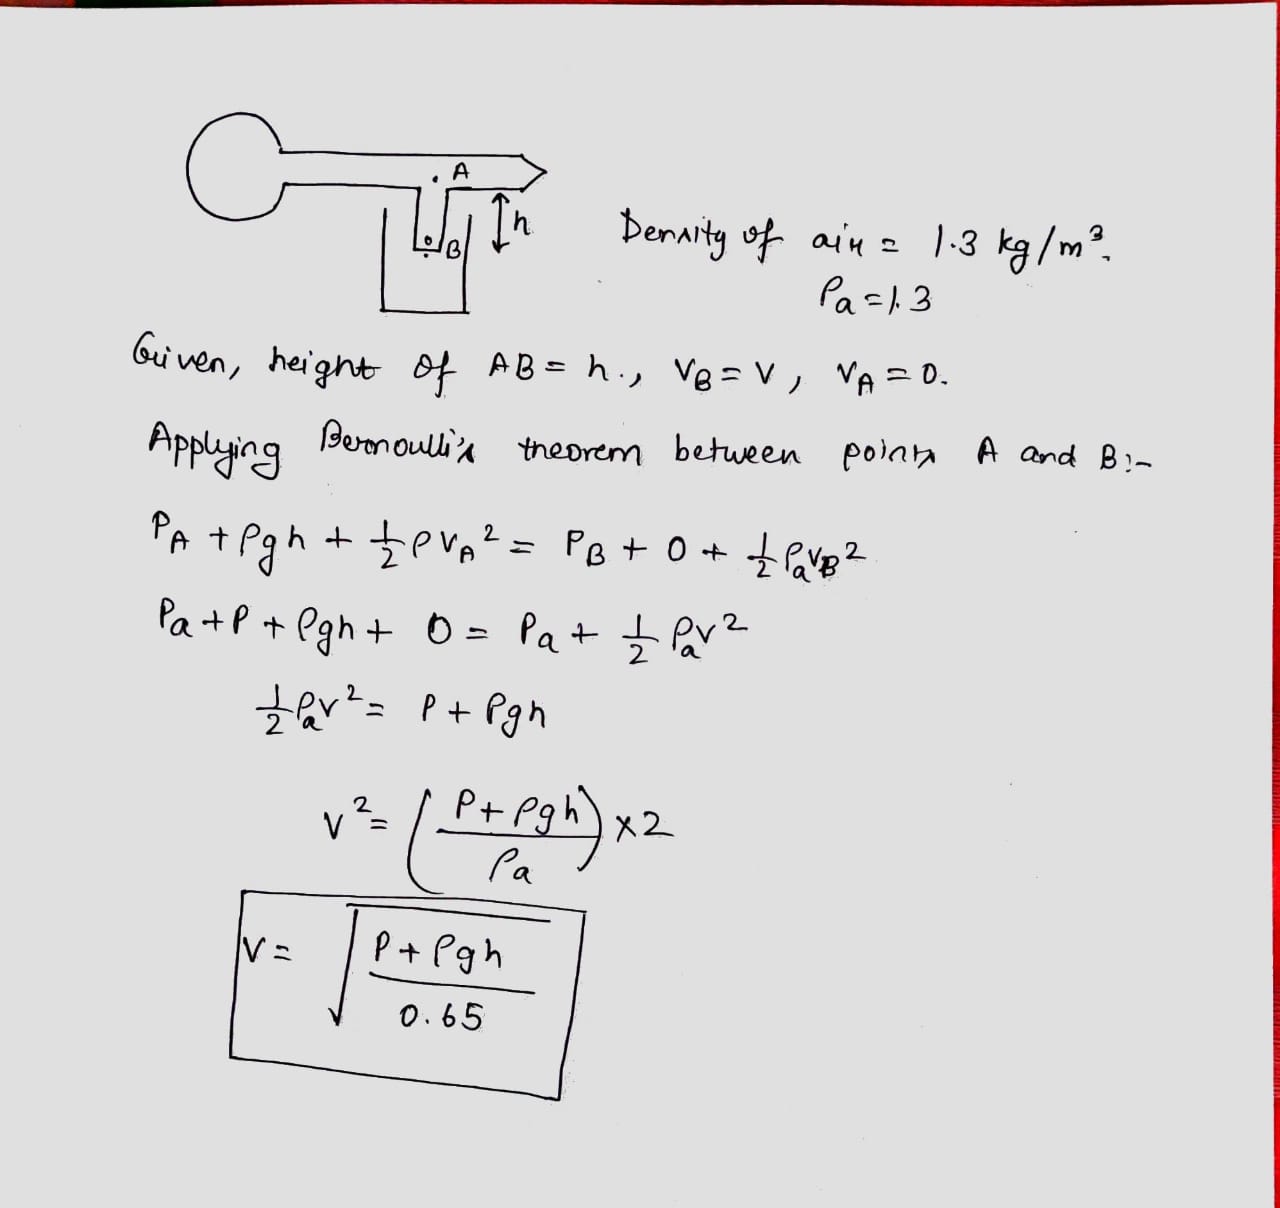 A
h
B
Density of air = 1.3 kg/m³.
ρa = 1.3
Given, height of AB = h., VB = V, VA = 0.
Applying Bernoulli's theorem between points A and B:-
PA + ρgh + 1/2 ρVA² = PB + 0 + 1/2 ρaVB²
Pa + P + ρgh + 0 = Pa + 1/2 ρaV²
1/2 ρaV² = P + ρgh
V² = (P + ρgh / ρa) × 2
V = √(P + ρgh / 0.65)